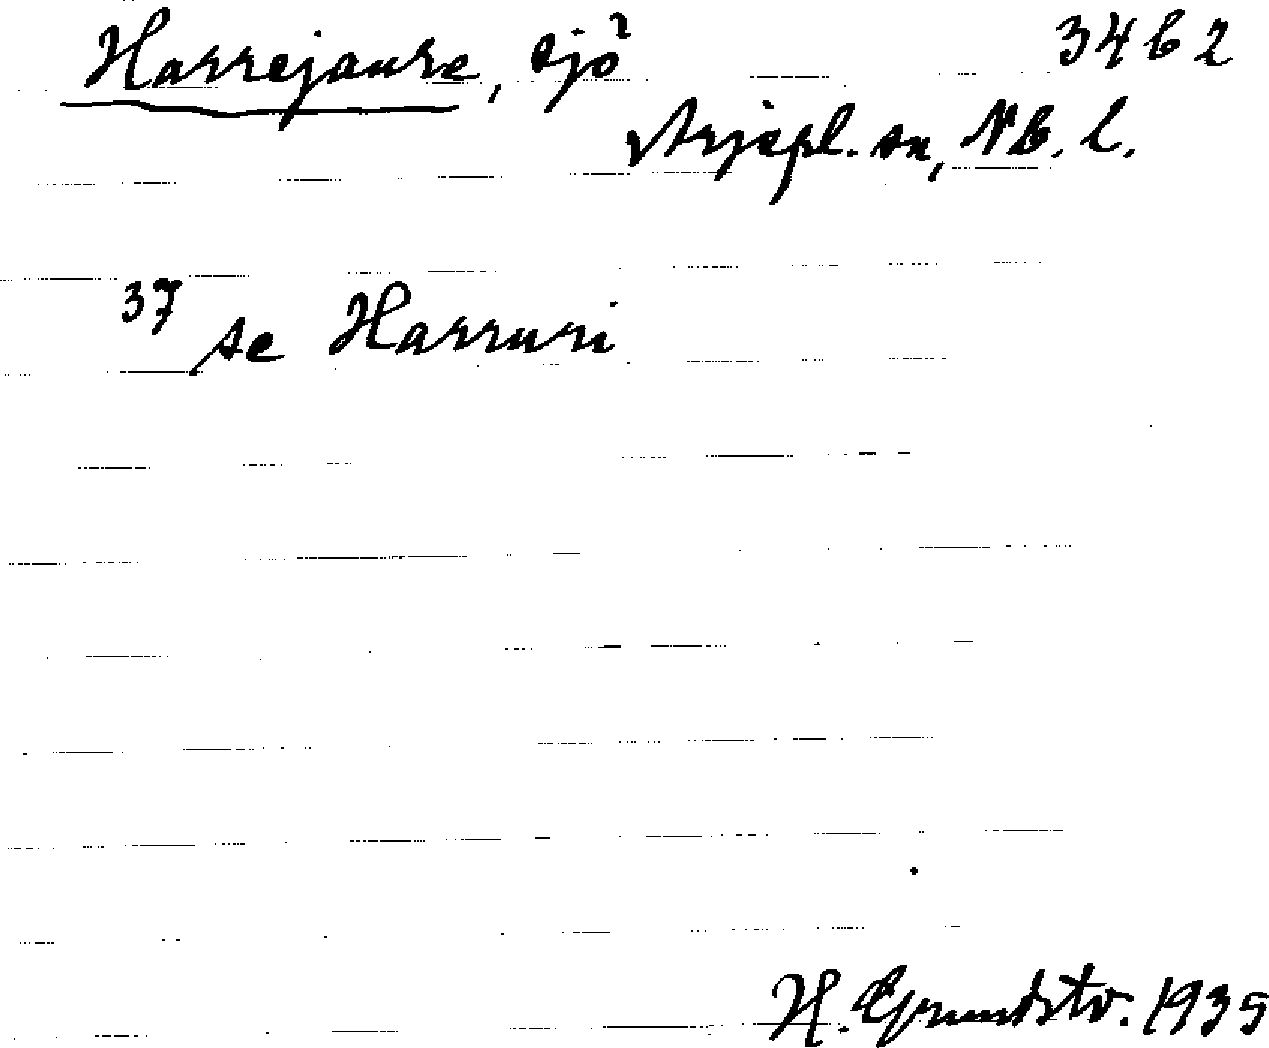 Harrejaure, sjö 3462
Arjepl. sn, Nb. l.
37 se Harruri
H. Grundstr. 1935